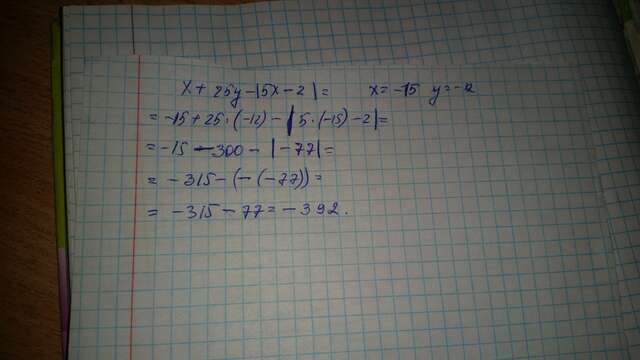 x + 25y - |5x - 2| = x = -15 y = -12
= -15 + 25·(-12) - |5·(-15) - 2| =
= -15 - 300 - |-77| =
= -315 - (-(-77)) =
= -315 - 77 = -392.